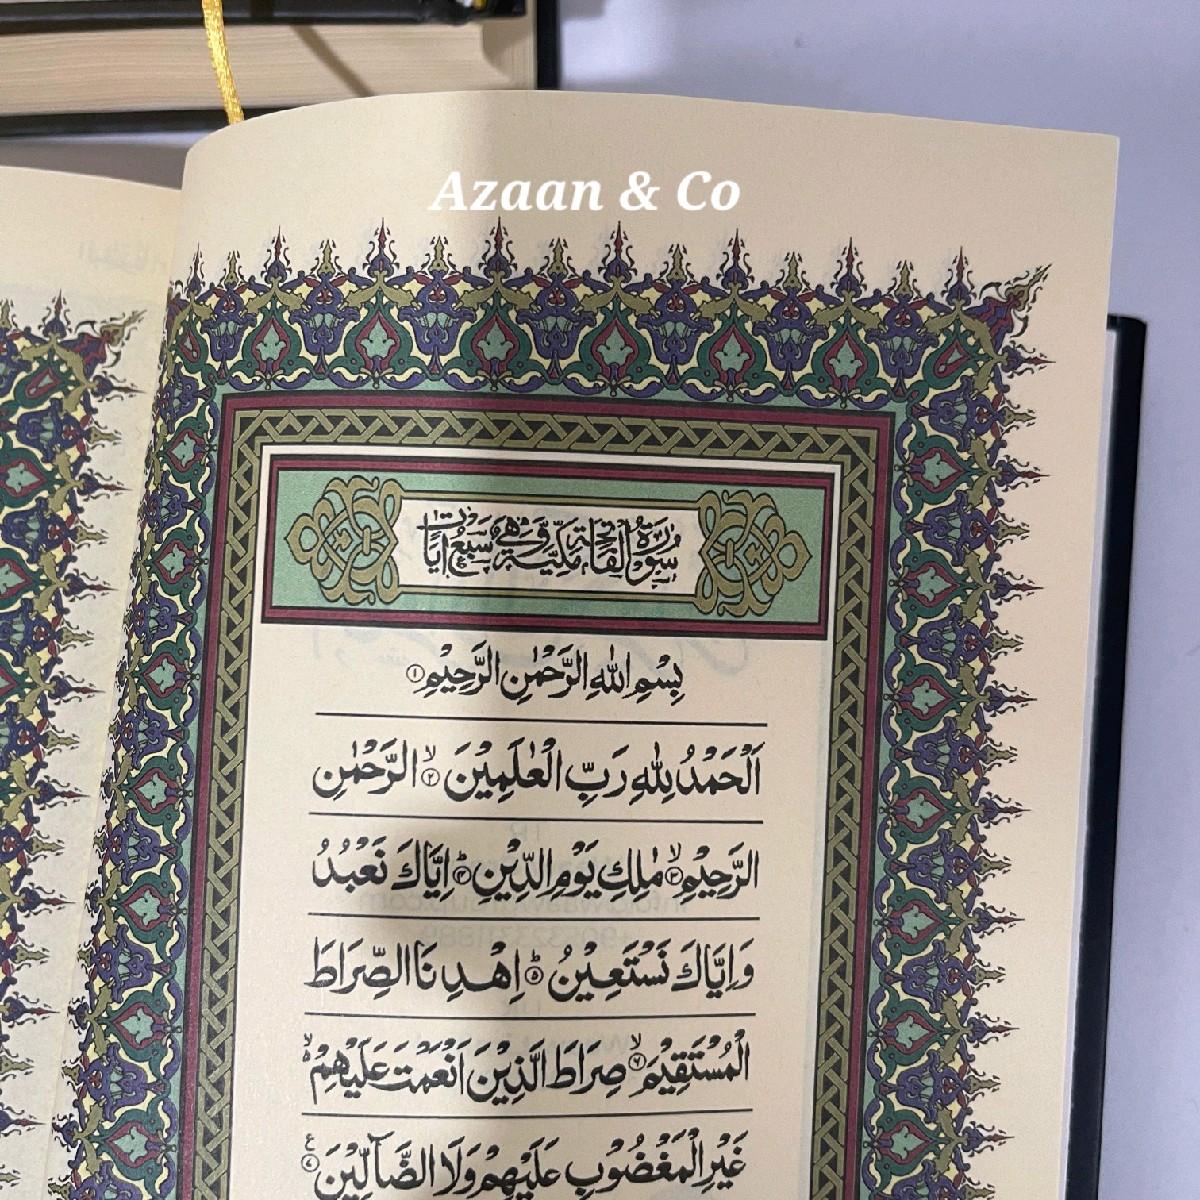 Azaan & Co
سُوْرَةُ الْفَاتِحَةِ مَكِّيَّةٌ وَّهِيَ سَبْعُ اٰيَاتٍ
بِسْمِ اللّٰهِ الرَّحْمٰنِ الرَّحِيْمِ ①
اَلْحَمْدُ لِلّٰهِ رَبِّ الْعٰلَمِيْنَ ۙ② الرَّحْمٰنِ
الرَّحِيْمِ ۙ③ مٰلِكِ يَوْمِ الدِّيْنِ ؕ④ اِيَّاكَ نَعْبُدُ
وَاِيَّاكَ نَسْتَعِيْنُ ؕ⑤ اِهْدِنَا الصِّرَاطَ
الْمُسْتَقِيْمَ ۙ صِرَاطَ الَّذِيْنَ اَنْعَمْتَ عَلَيْهِمْ ۙ
غَيْرِ الْمَغْضُوْبِ عَلَيْهِمْ وَلَا الضَّآلِّيْنَ